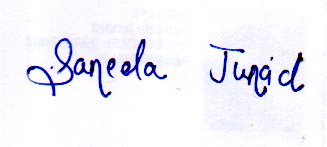 Saneela Junaid